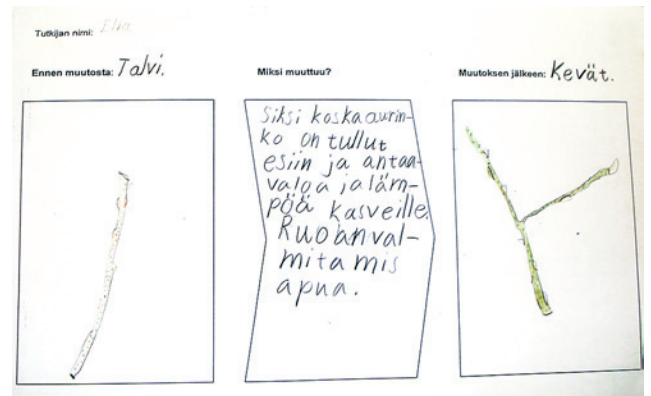 Tutkijan nimi: Elia
Ennen muutosta: Talvi.
Miksi muuttuu?
Muutoksen jälkeen: Kevät.
Siksi koska aurin-
ko on tullut
esiin ja antaa
valoa ja läm-
pöä kasveille.
Ruoanval-
mitamis
apua.